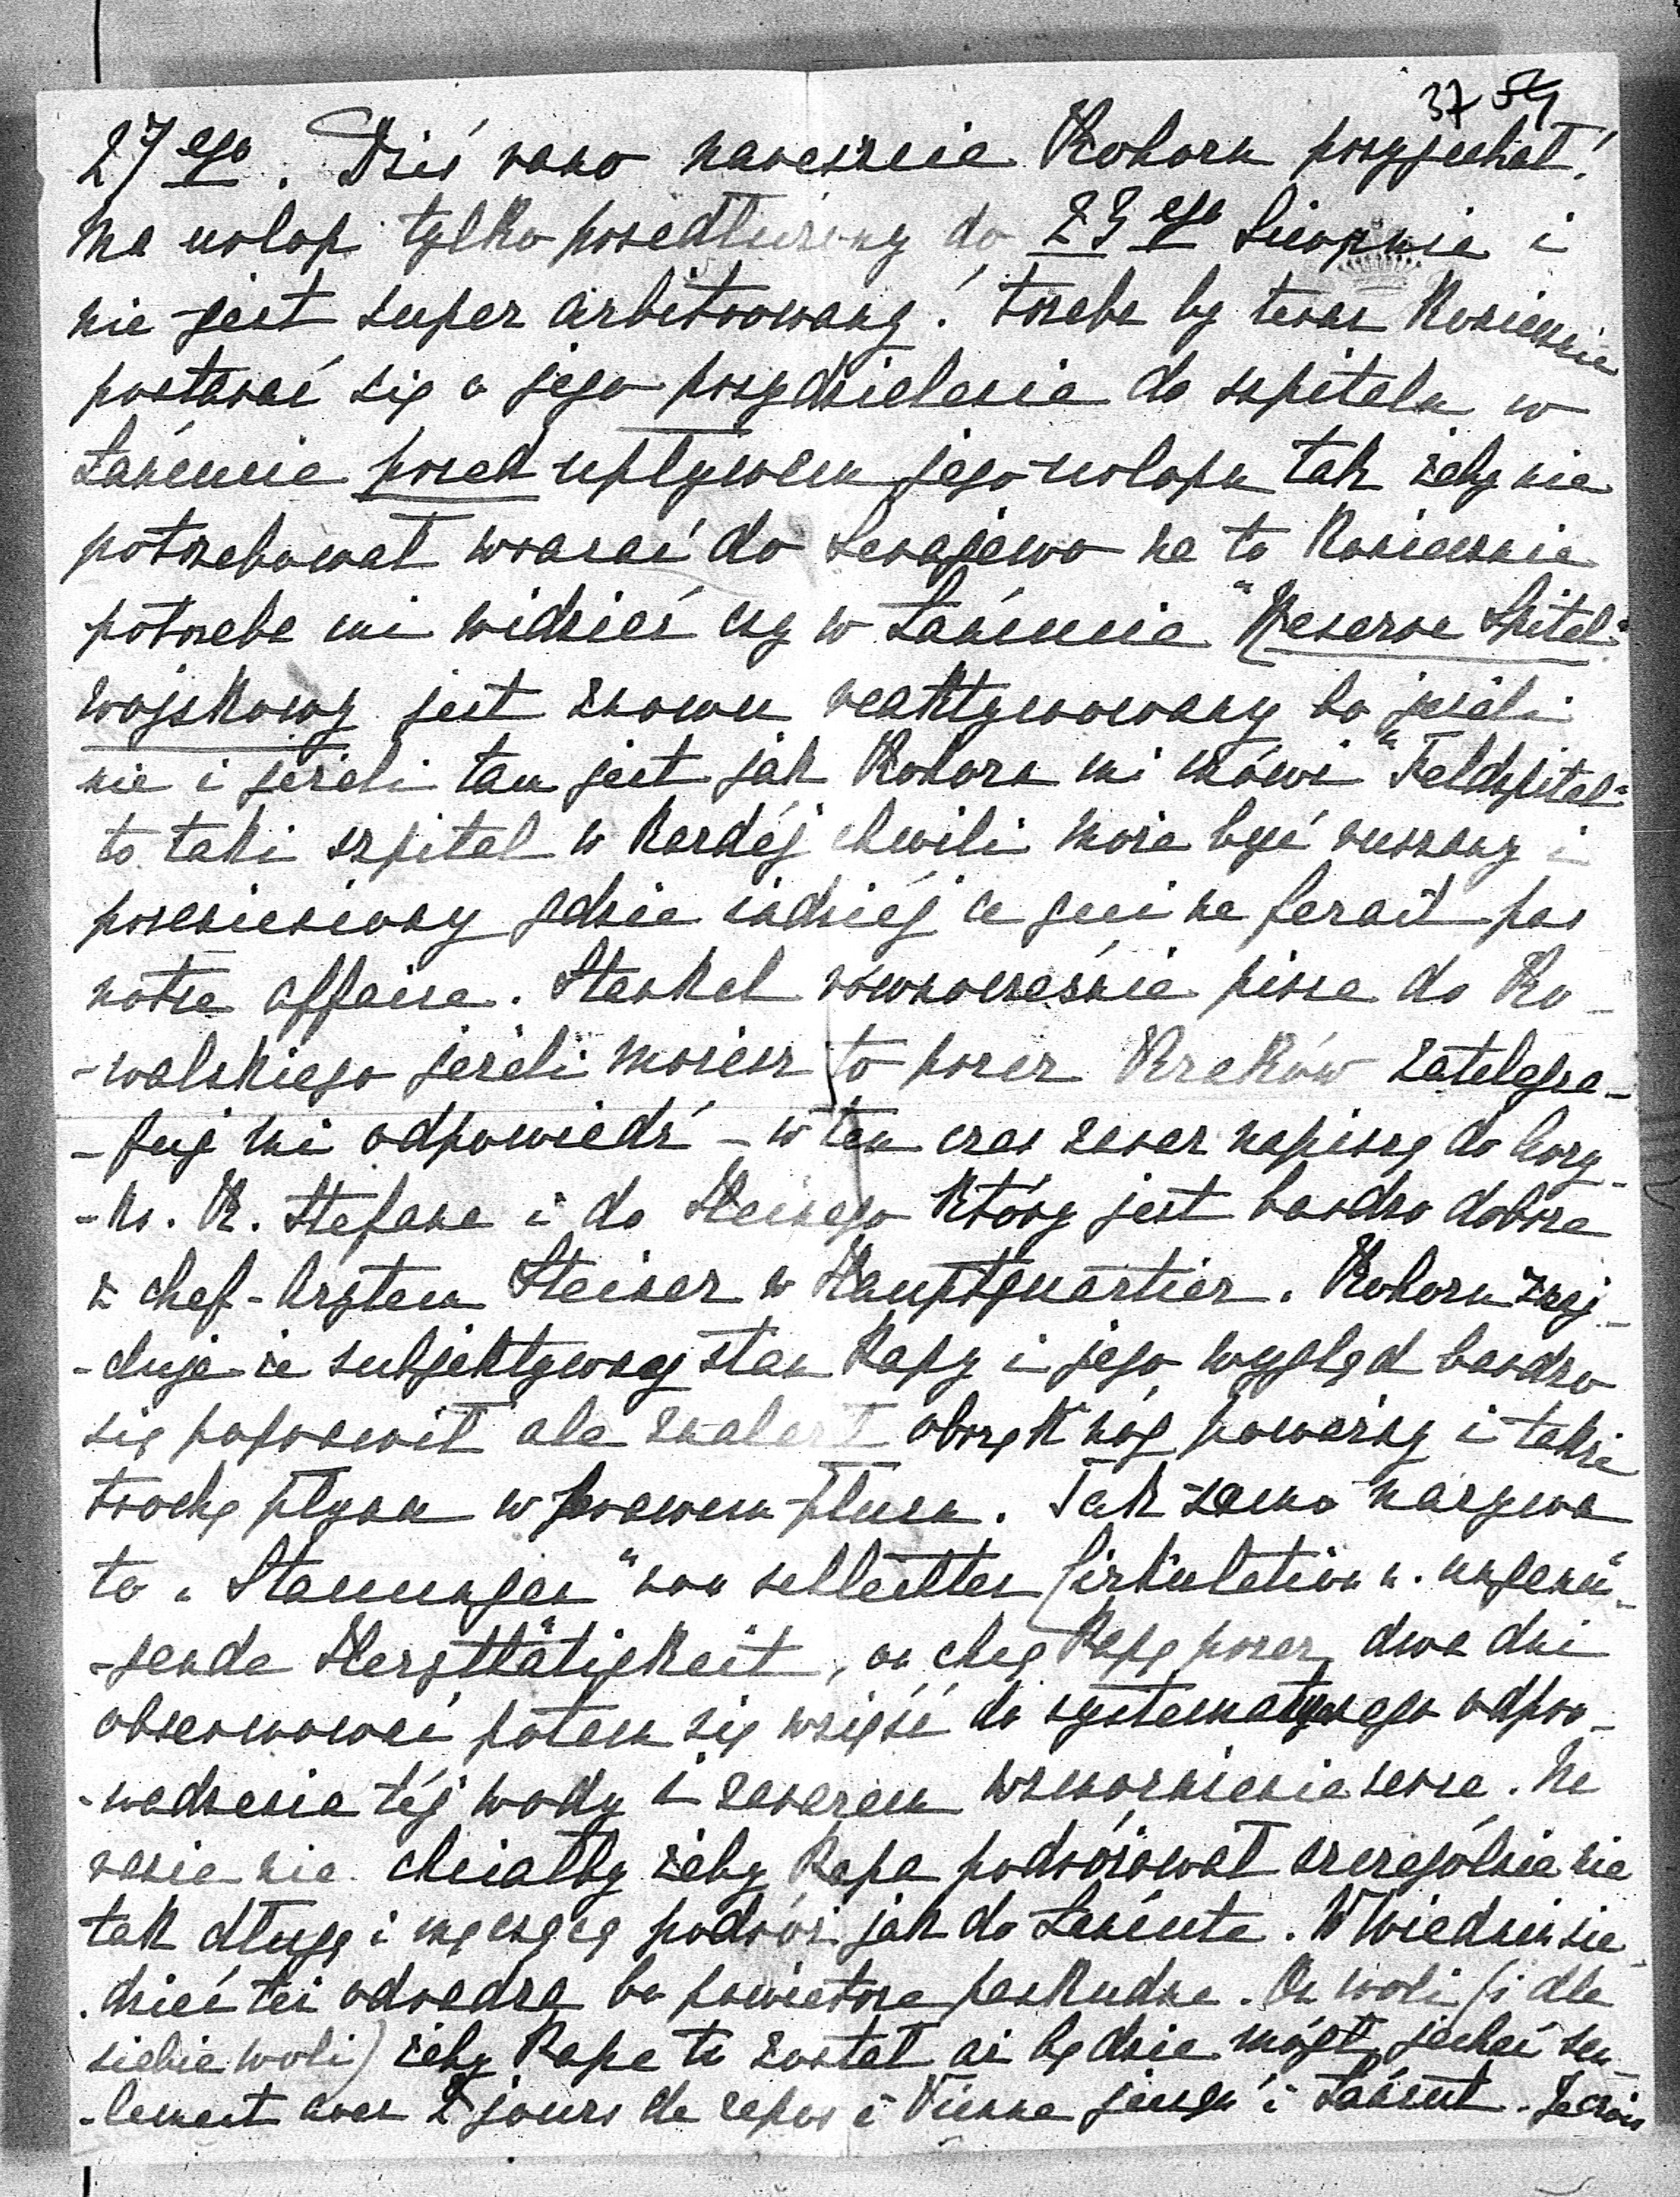 37 54
27ego. Dziś rano nareszcie Kohorn przyjechał!
Ma urlop tylko przedłużony do 23ego Sierpnia i
nie jest super arbitrowany! trzeba by teraz koniecznie
postarać się o jego przydzielenie do szpitala w
Łańcucie przed upływem jego urlopu tak żeby nie
potrzebował wracać do Serajewo na to koniecznie
potrzeba mi widzieć czy w Łańcucie "Reserve Spital"
wojskowy jest znowu reaktywowany bo jeżeli
nie i jeżeli tam jest jak Kohorn mi mówi "Feldspital"
to taki szpital w każdéj chwili może być ruszany i
przeniesiony gdzie indziéj ce qui ne ferait pas
notre affaire. Stenkel równocześnie pisze do Ko-
-walskiego jeżeli możesz to przez Kraków zatelegra-
-fuj mi odpowiedź – w ten czas zaraz napiszę do Arcy-
-ks. K. Stefana i do Heinego który jest bardzo dobrze
z chef-Arztem Steiner w Hauptquartier. Kohorn znaj-
-duje że subjektywny stan Papy i jego wygląd bardzo
się poprawił ale znalazł obrzęk nóg poważny i także
trochę płynu w prawem płucu. Tak samo nazywa
to "Stauungen" von schlechter Cirkulation u. ungenü-
-gende Herztätigkeit, on chcę Papę przez dwa dni
obserwować potem się wziąść do systematycznego odpro-
-wadzenia téj wody i zarazem wzmocnienie serca. Na
razie nie chciałby żeby Papa podróżował szczególnie nie
tak długą i męczącą podróż jak do Łańcuta. W Wiedniu sie-
-dzieć też odradza bo powietrze paskudne. On woli (i dla
siebie woli) żeby Papa tu został aż będzie mógł jechać seu-
-lement avec 2 jours de repos à Vienne jusqu'à Łańcut. Je crois